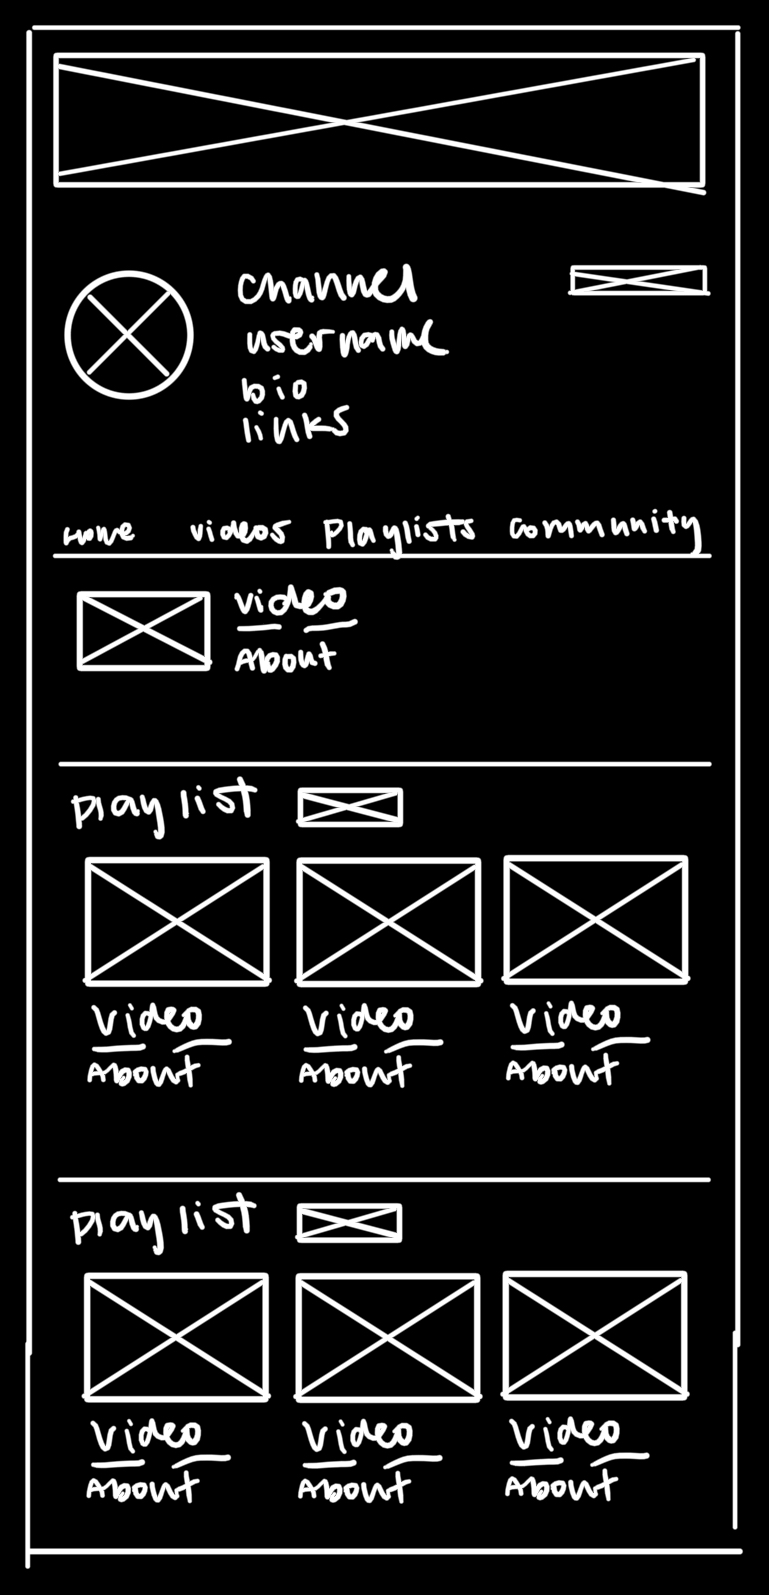 channel
username
bio
links
Home videos Playlists Community
Video
About
Playlist
Video Video Video
About About About
Playlist
Video Video Video
About About About